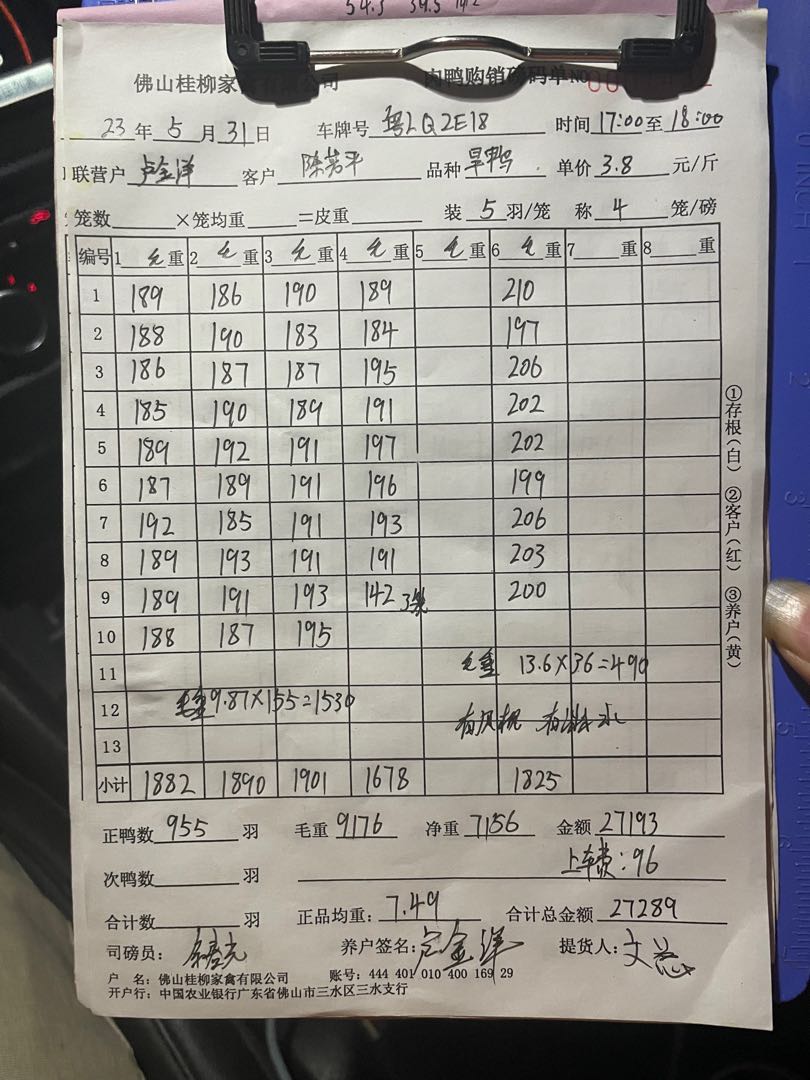 54.5 34.5 142
佛山桂柳家禽有限公司 肉鸭购销磅码单 NO 00
23年5月31日 车牌号 粤LQ2E18 时间 17:00至18:00
联营户 卢金洋 客户 陈若平 品种 旱鸭 单价 3.8 元/斤
笼数 ×笼均重 =皮重 装 5 羽/笼 称 4 笼/磅
编号 1 毛重 2 毛重 3 毛重 4 毛重 5 毛重 6 毛重 7 重 8 重
1 189 186 190 189 210
2 188 190 183 184 197
3 186 187 187 195 206
4 185 190 189 191 202
5 189 192 191 197 202
6 187 189 191 196 199
7 192 185 191 193 206
8 189 193 191 191 203
9 189 191 193 142 3笼 200
10 188 187 195
11 毛重 13.6×36=490
12 毛重9.87×155=1530 有风机 有淋水
13
小计 1882 1890 1901 1678 1825
①存根(白) ②客户(红) ③养户(黄)
正鸭数 955 羽 毛重 9176 净重 7156 金额 27193
次鸭数 羽 上车费:96
合计数 羽 正品均重: 7.49 合计总金额 27289
司磅员: 养户签名: 卢金洋 提货人:
户 名: 佛山桂柳家禽有限公司 账号: 444 401 010 400 169 29
开户行: 中国农业银行广东省佛山市三水区三水支行